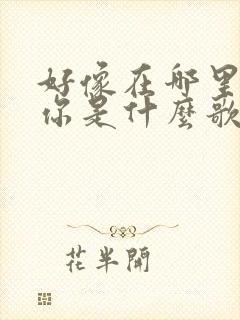 好像在哪里
你是什麼歌
花半開